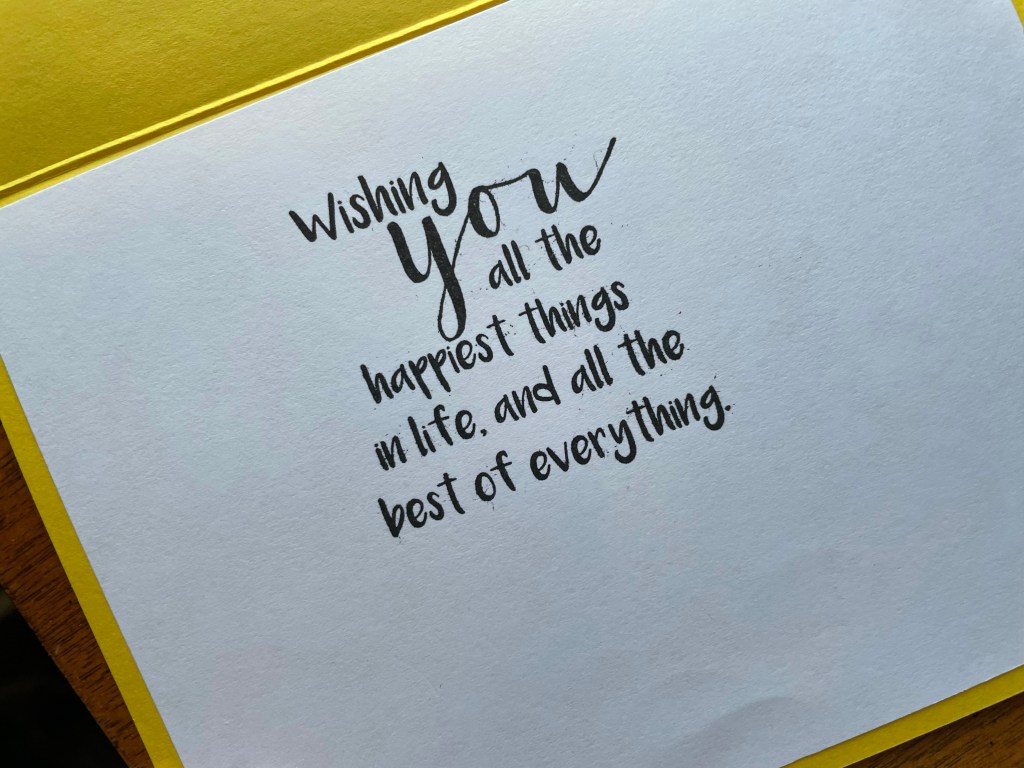 Wishing you
all the
happiest things
in life, and all the
best of everything.